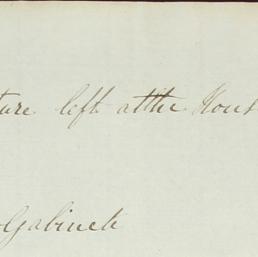 ture left at the Hous
Gabinete